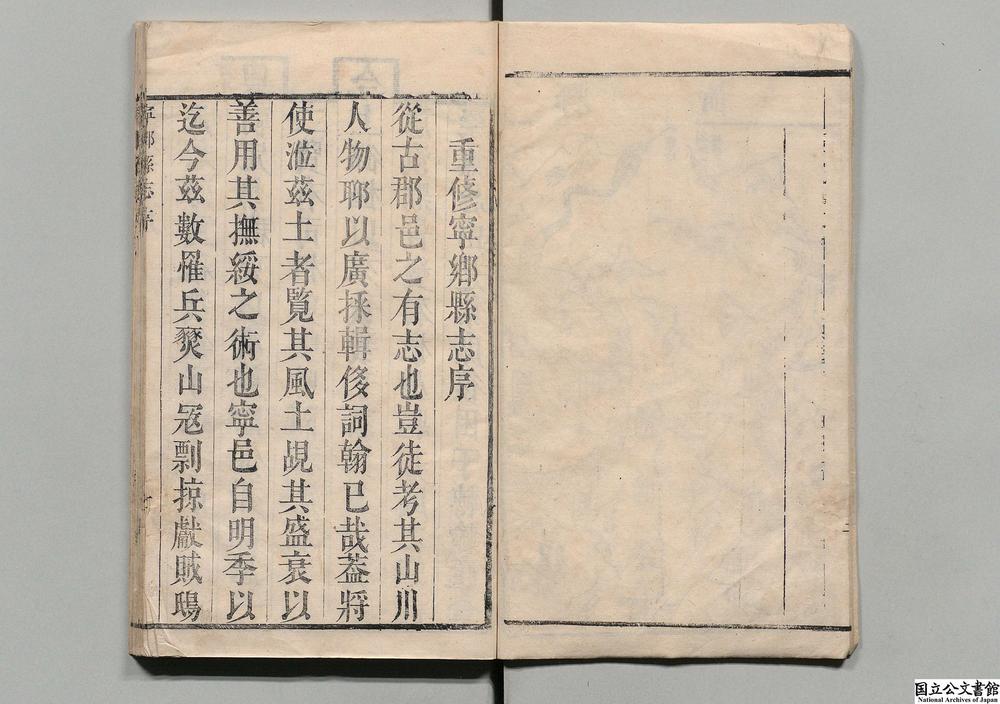 重修寧鄉縣志序
從古郡邑之有志也豈徒考其山川
人物耶以廣採輯侈詞翰已哉蓋將
使涖茲土者覽其風土覘其盛衰以
善用其撫綏之術也寧邑自明季以
迄今茲數罹兵燹山冦剽掠獻賊鴟
寧鄉縣志序
国立公文書館
National Archives of Japan